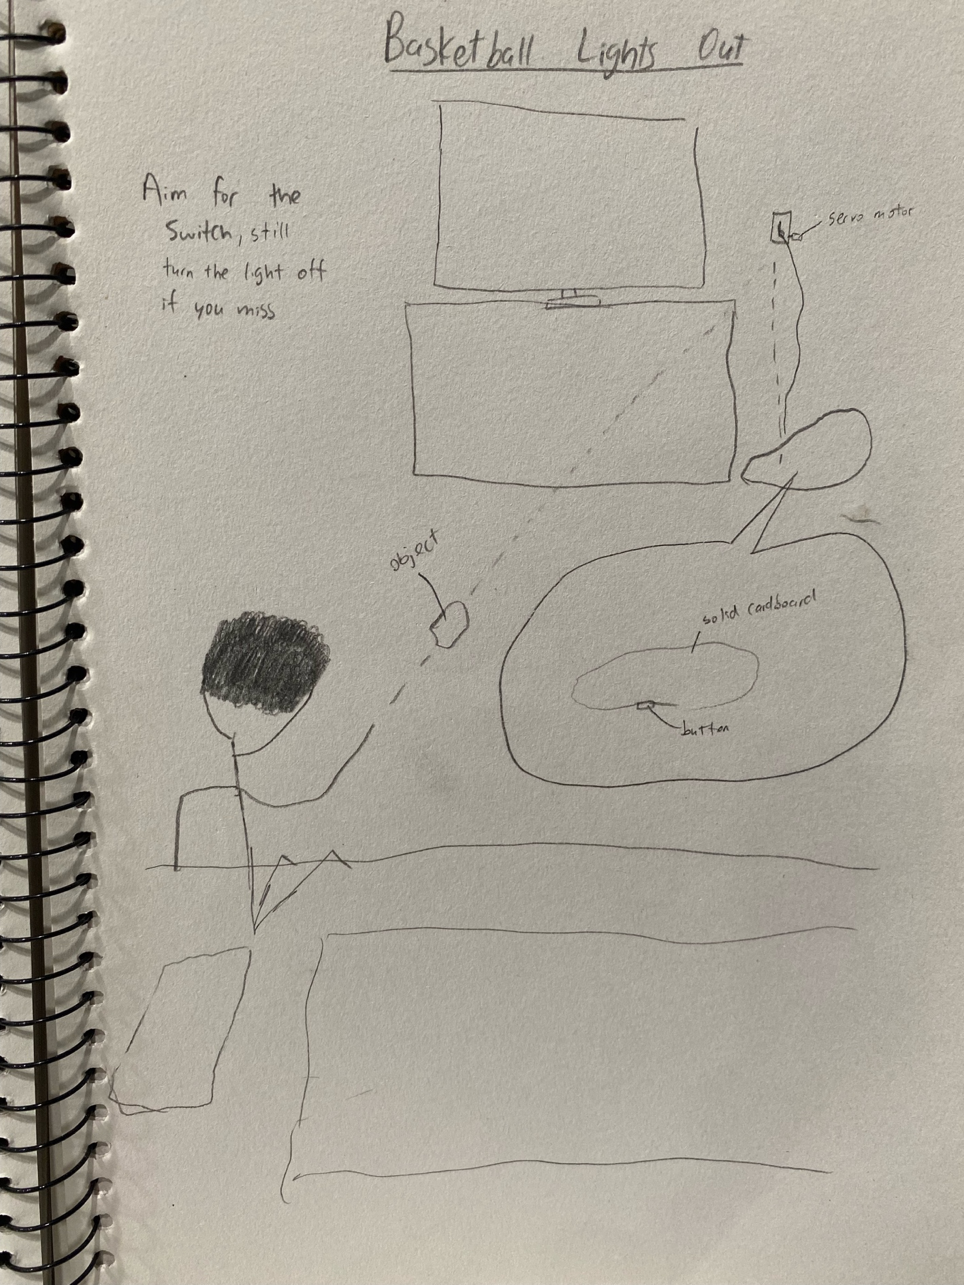 Basketball Lights Out
Aim for the
Switch, still
turn the light off
if you miss
servo motor
object
solid cardboard
button